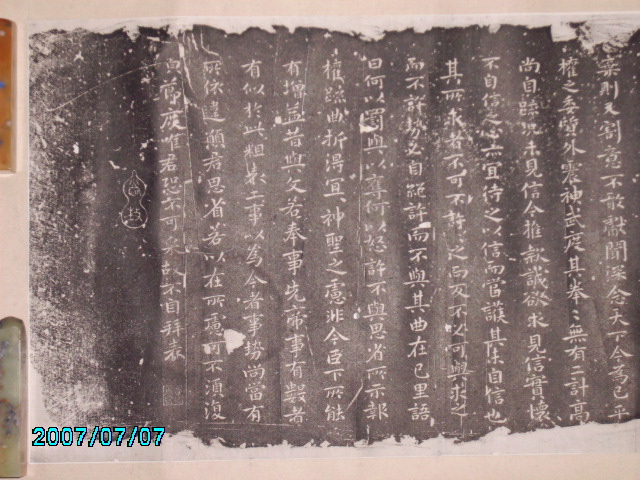 棄則又割意不敢獻聞深念天下今為已平
權之委質外震神武度其拳〻無有二計高
尚自疏況未見信今推款誠欲求見信實懷
不自信之心亦宜待之以信而當護其未自信也
其所求者不可不許許之而反不必可與求之
而不許勢必自絕許而不與其曲在己里語
曰何以罰與以奪何以怒許不與思省所示報
權疏曲折得宜宜神聖之慮非今臣下所能
有增益昔與文若奉事先帝事有數者
有似於此粗表二事以為今者事勢尚當有
所依違願君思省若以在所慮可不須復
節度唯君恐不可采故不自拜表
2007/07/07